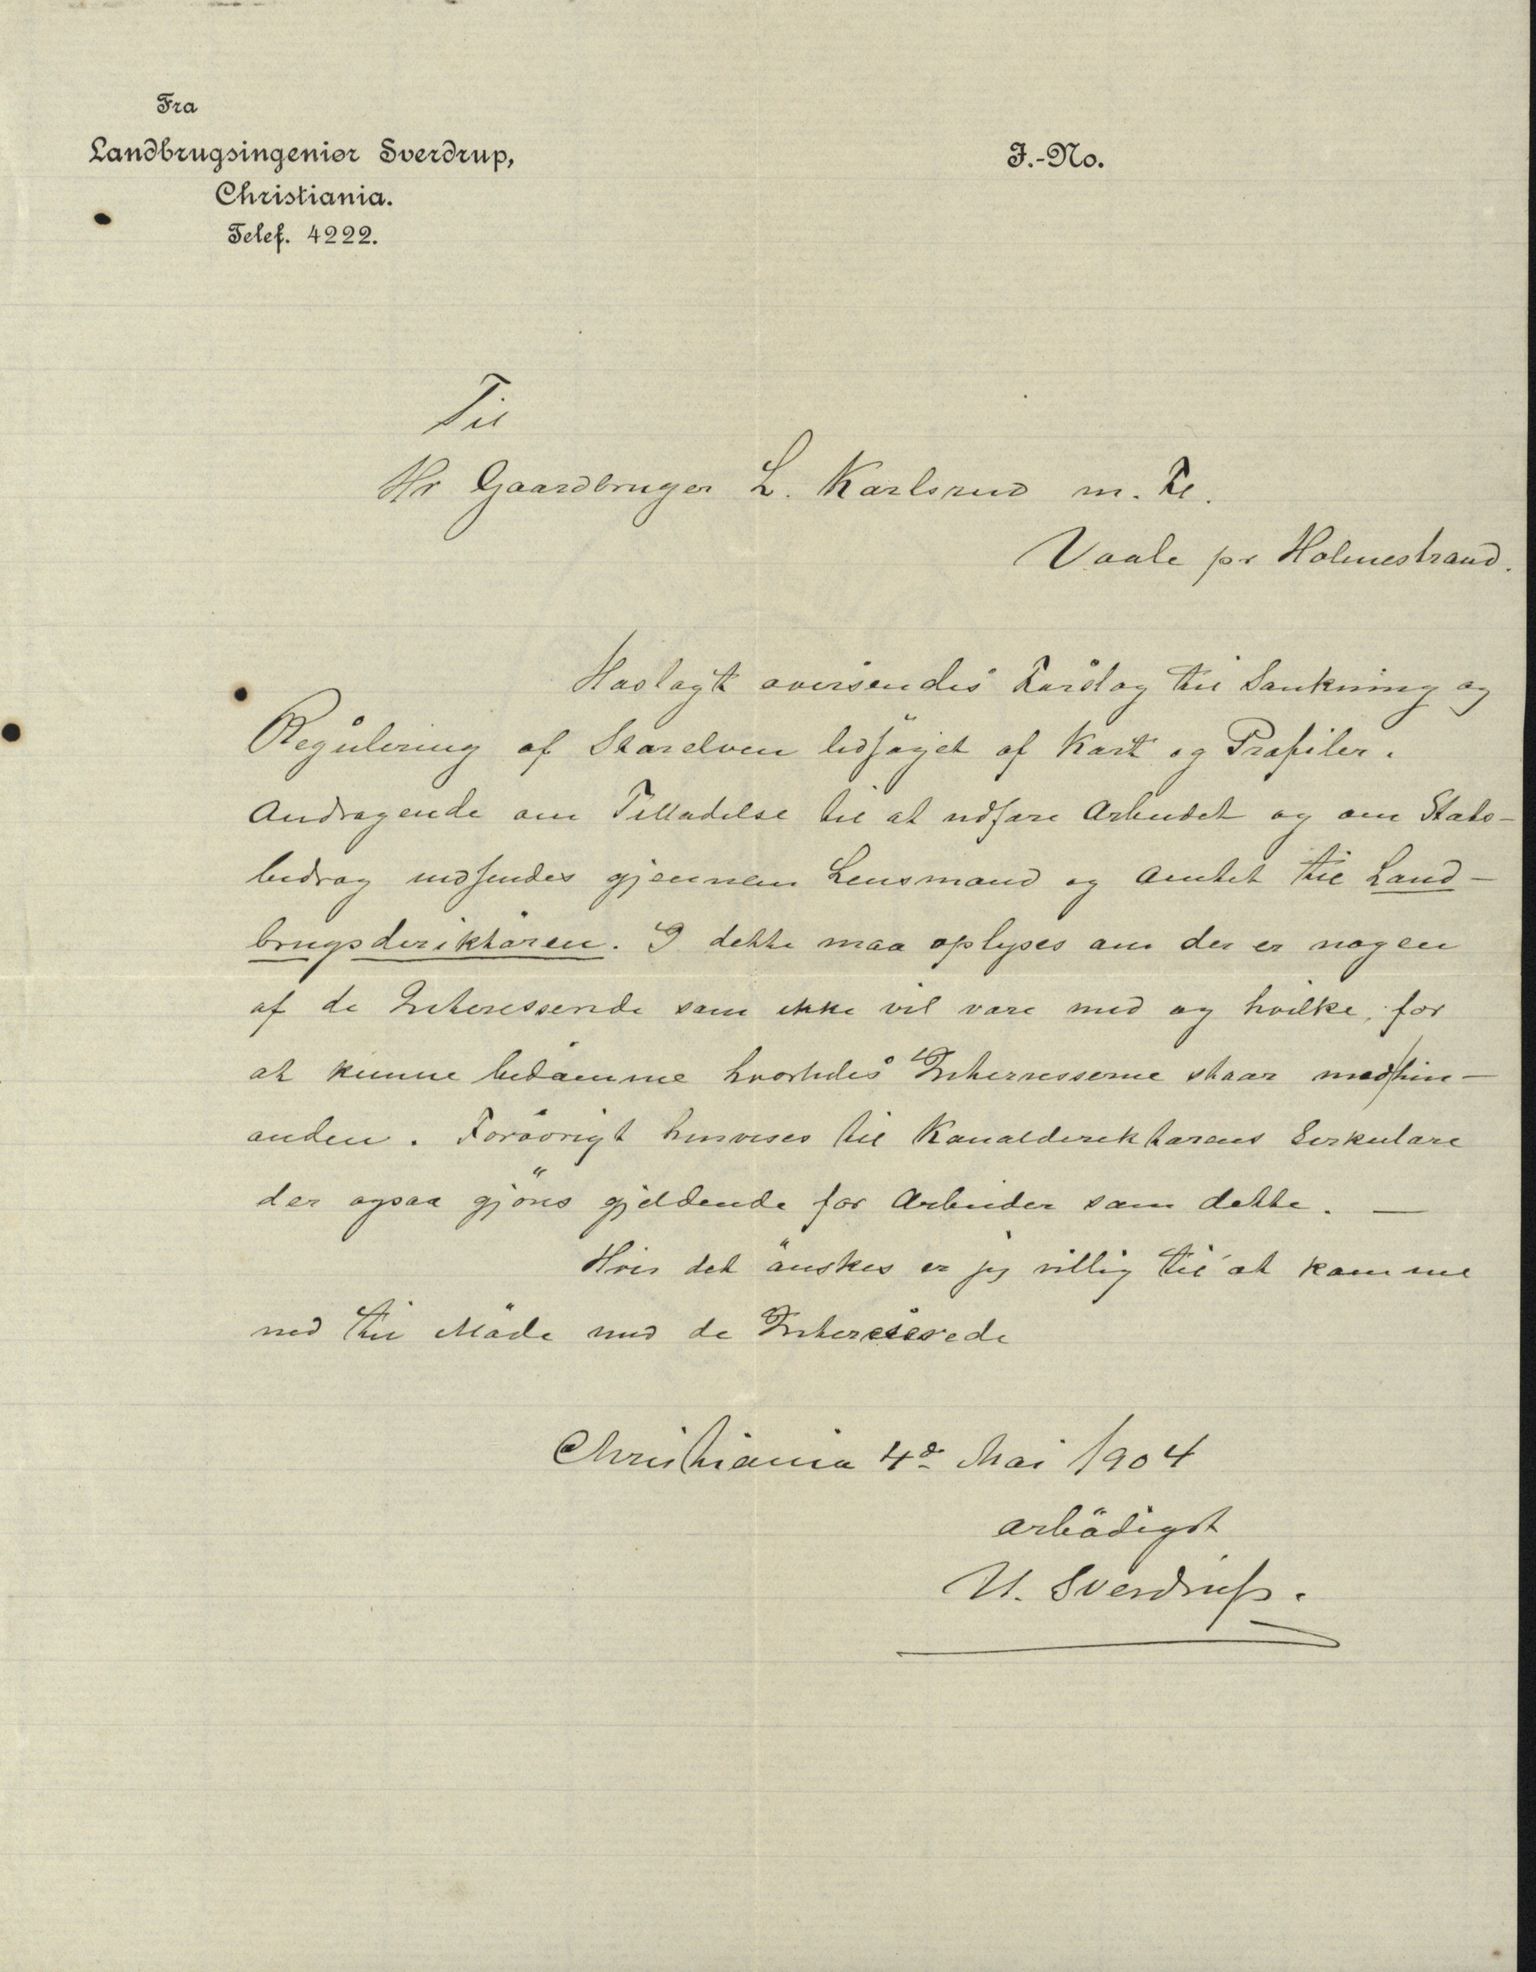 Fra
Landbrugsingeniør Sverdrup,
Christiania.
Telef. 4222.
J.-No.
Til
Hr Gaardbruger L. Karlsrud m. Fl.
Vaale pr Holmestrand.
Hoslagt oversendes Forslag til Sænkning og
Regulering af Storelven ledsaget af Kart og Profiler.
Andragende om Tilladelse til at udføre Arbeidet og om Stats-
bidrag indsendes gjennem Lensmand og Amtet til Land-
brugsdirektøren. I dette maa oplyses om der er nogen
af de Interesserede som ikke vil være med og hvilke, for
at kunne bedømme hvorledes Interesserne staar mod hin-
anden. Forøvrigt henvises til Kanaldirektørens Cirkulære
der ogsaa gjöres gjeldende for Arbeider som dette. —
Hvis det önskes er jeg villig til at komme
ned til Møde med de Interesserede
Christiania 4de Mai 1904
ærbödigst
U. Sverdrup.